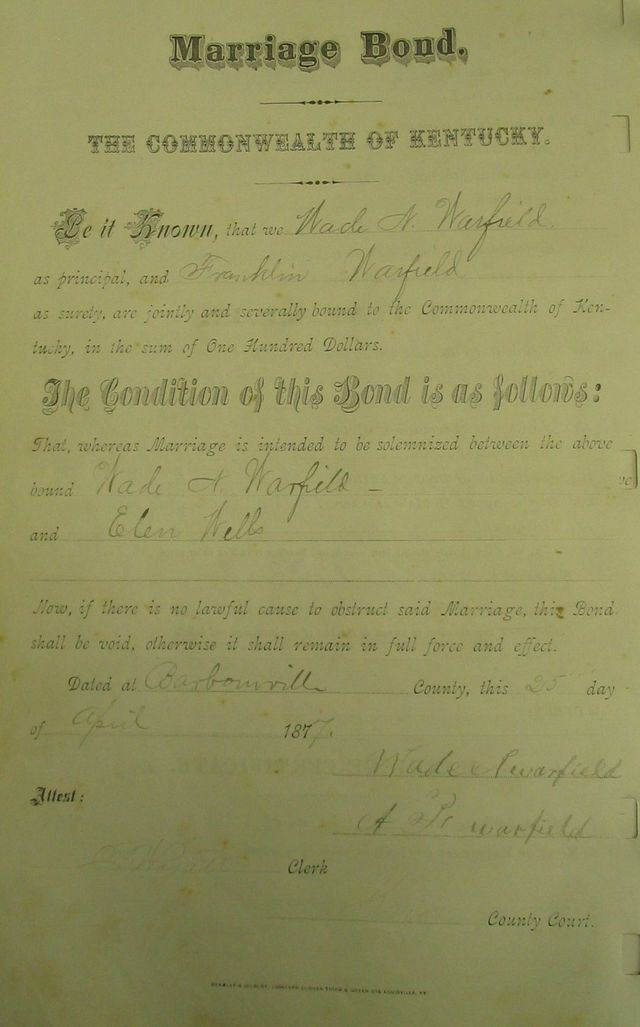 Marriage Bond.
THE COMMONWEALTH OF KENTUCKY.
Be it Known, that we Wade N. Warfield.
as principal, and Franklin Warfield
as surety, are jointly and severally bound to the Commonwealth of Ken-
tucky, in the sum of One Hundred Dollars.
The Condition of this Bond is as follows:
That, whereas Marriage is intended to be solemnized between the above
bound Wade N. Warfield –
and Elen Wells
Now, if there is no lawful cause to obstruct said Marriage, this Bond
shall be void, otherwise it shall remain in full force and effect.
Dated at Barbourvill County, this 25 day
of April 1877.
Wade N warfield
Attest:
A F warfield
Clerk
County Court.